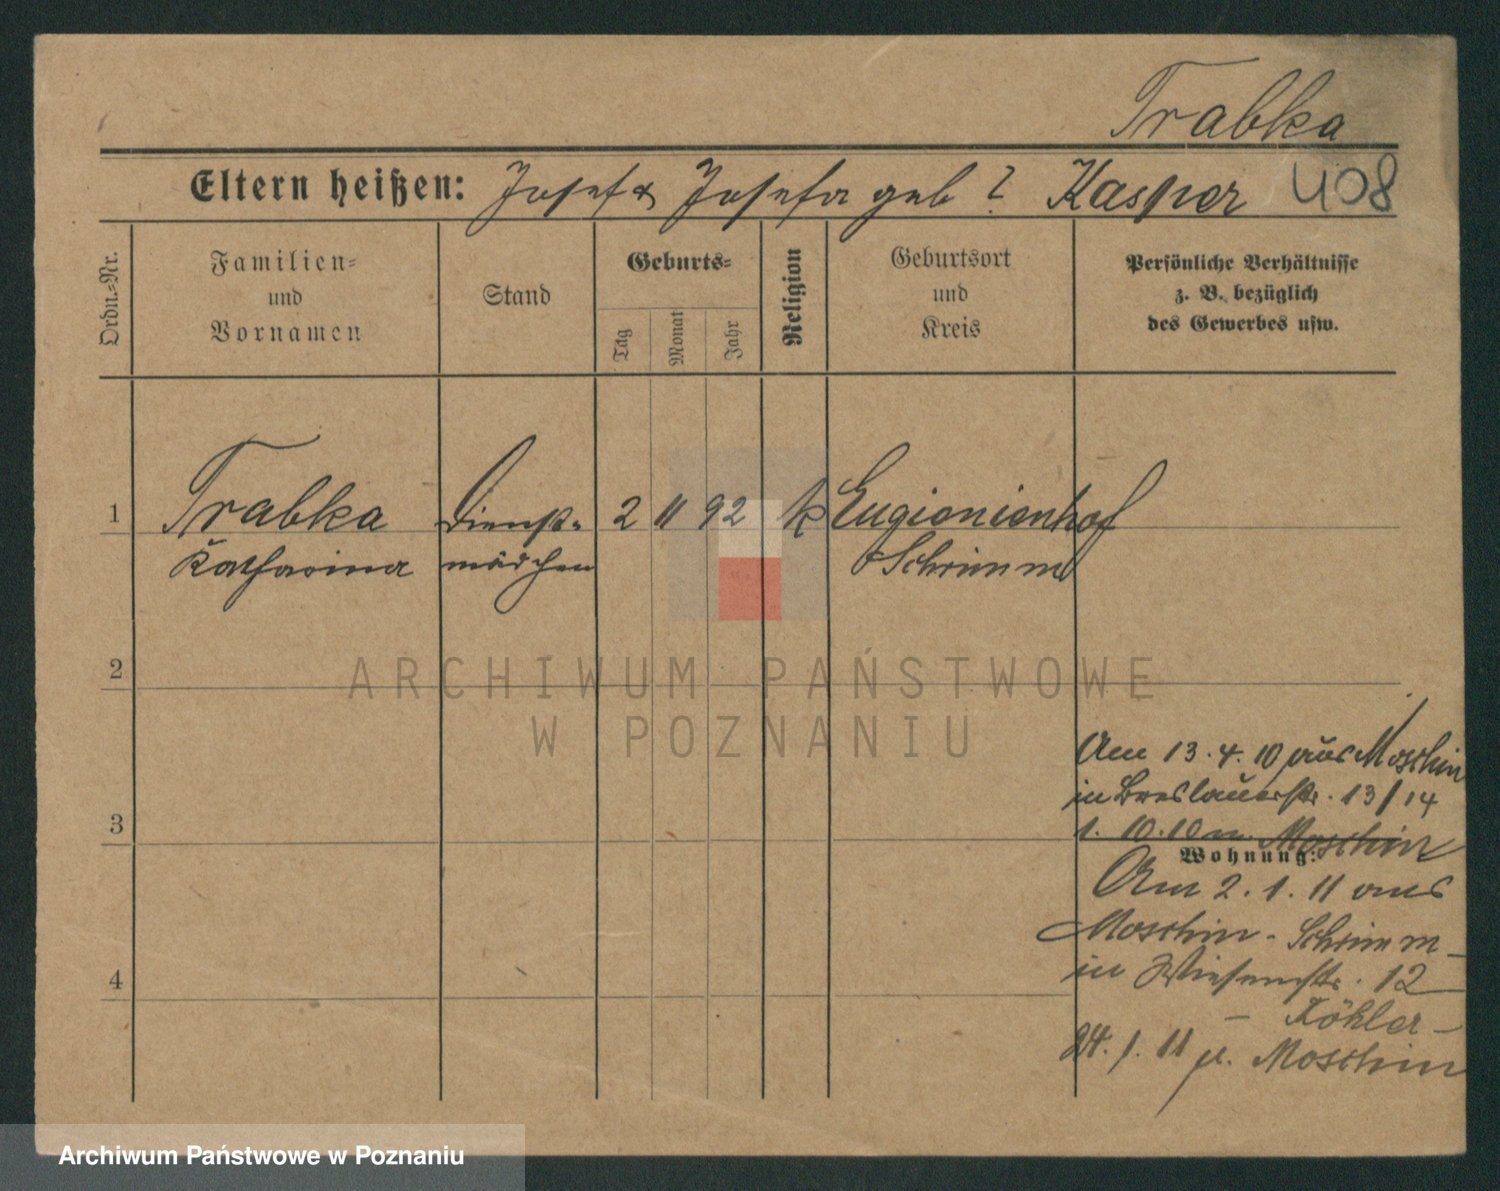 Trabka
Eltern heißen: Josef & Josefa geb ? Kasper 408
Ordn.=Nr.
Familien=
und
Vornamen
Stand
Geburts=
Tag
Monat
Jahr
Religion
Geburtsort
und
Kreis
Persönliche Verhältnisse
z. B. bezüglich
des Gewerbes usw.
1 Trabka Dienst= 2 11 92 k Eugienienhof
Katharina mädchen Schrimm
2
ARCHIWUM PAŃSTWOWE
W POZNANIU
Am 13.4.10 aus Moschin
in Breslauerstr. 13/14
3
1.10.10 n. Moschin
Wohnung:
Am 2.1.11 aus
Moschin - Schrimm -
in Wiesenstr. 12
4
- Köhler -
24.1.11 n. Moschin
Archiwum Państwowe w Poznaniu